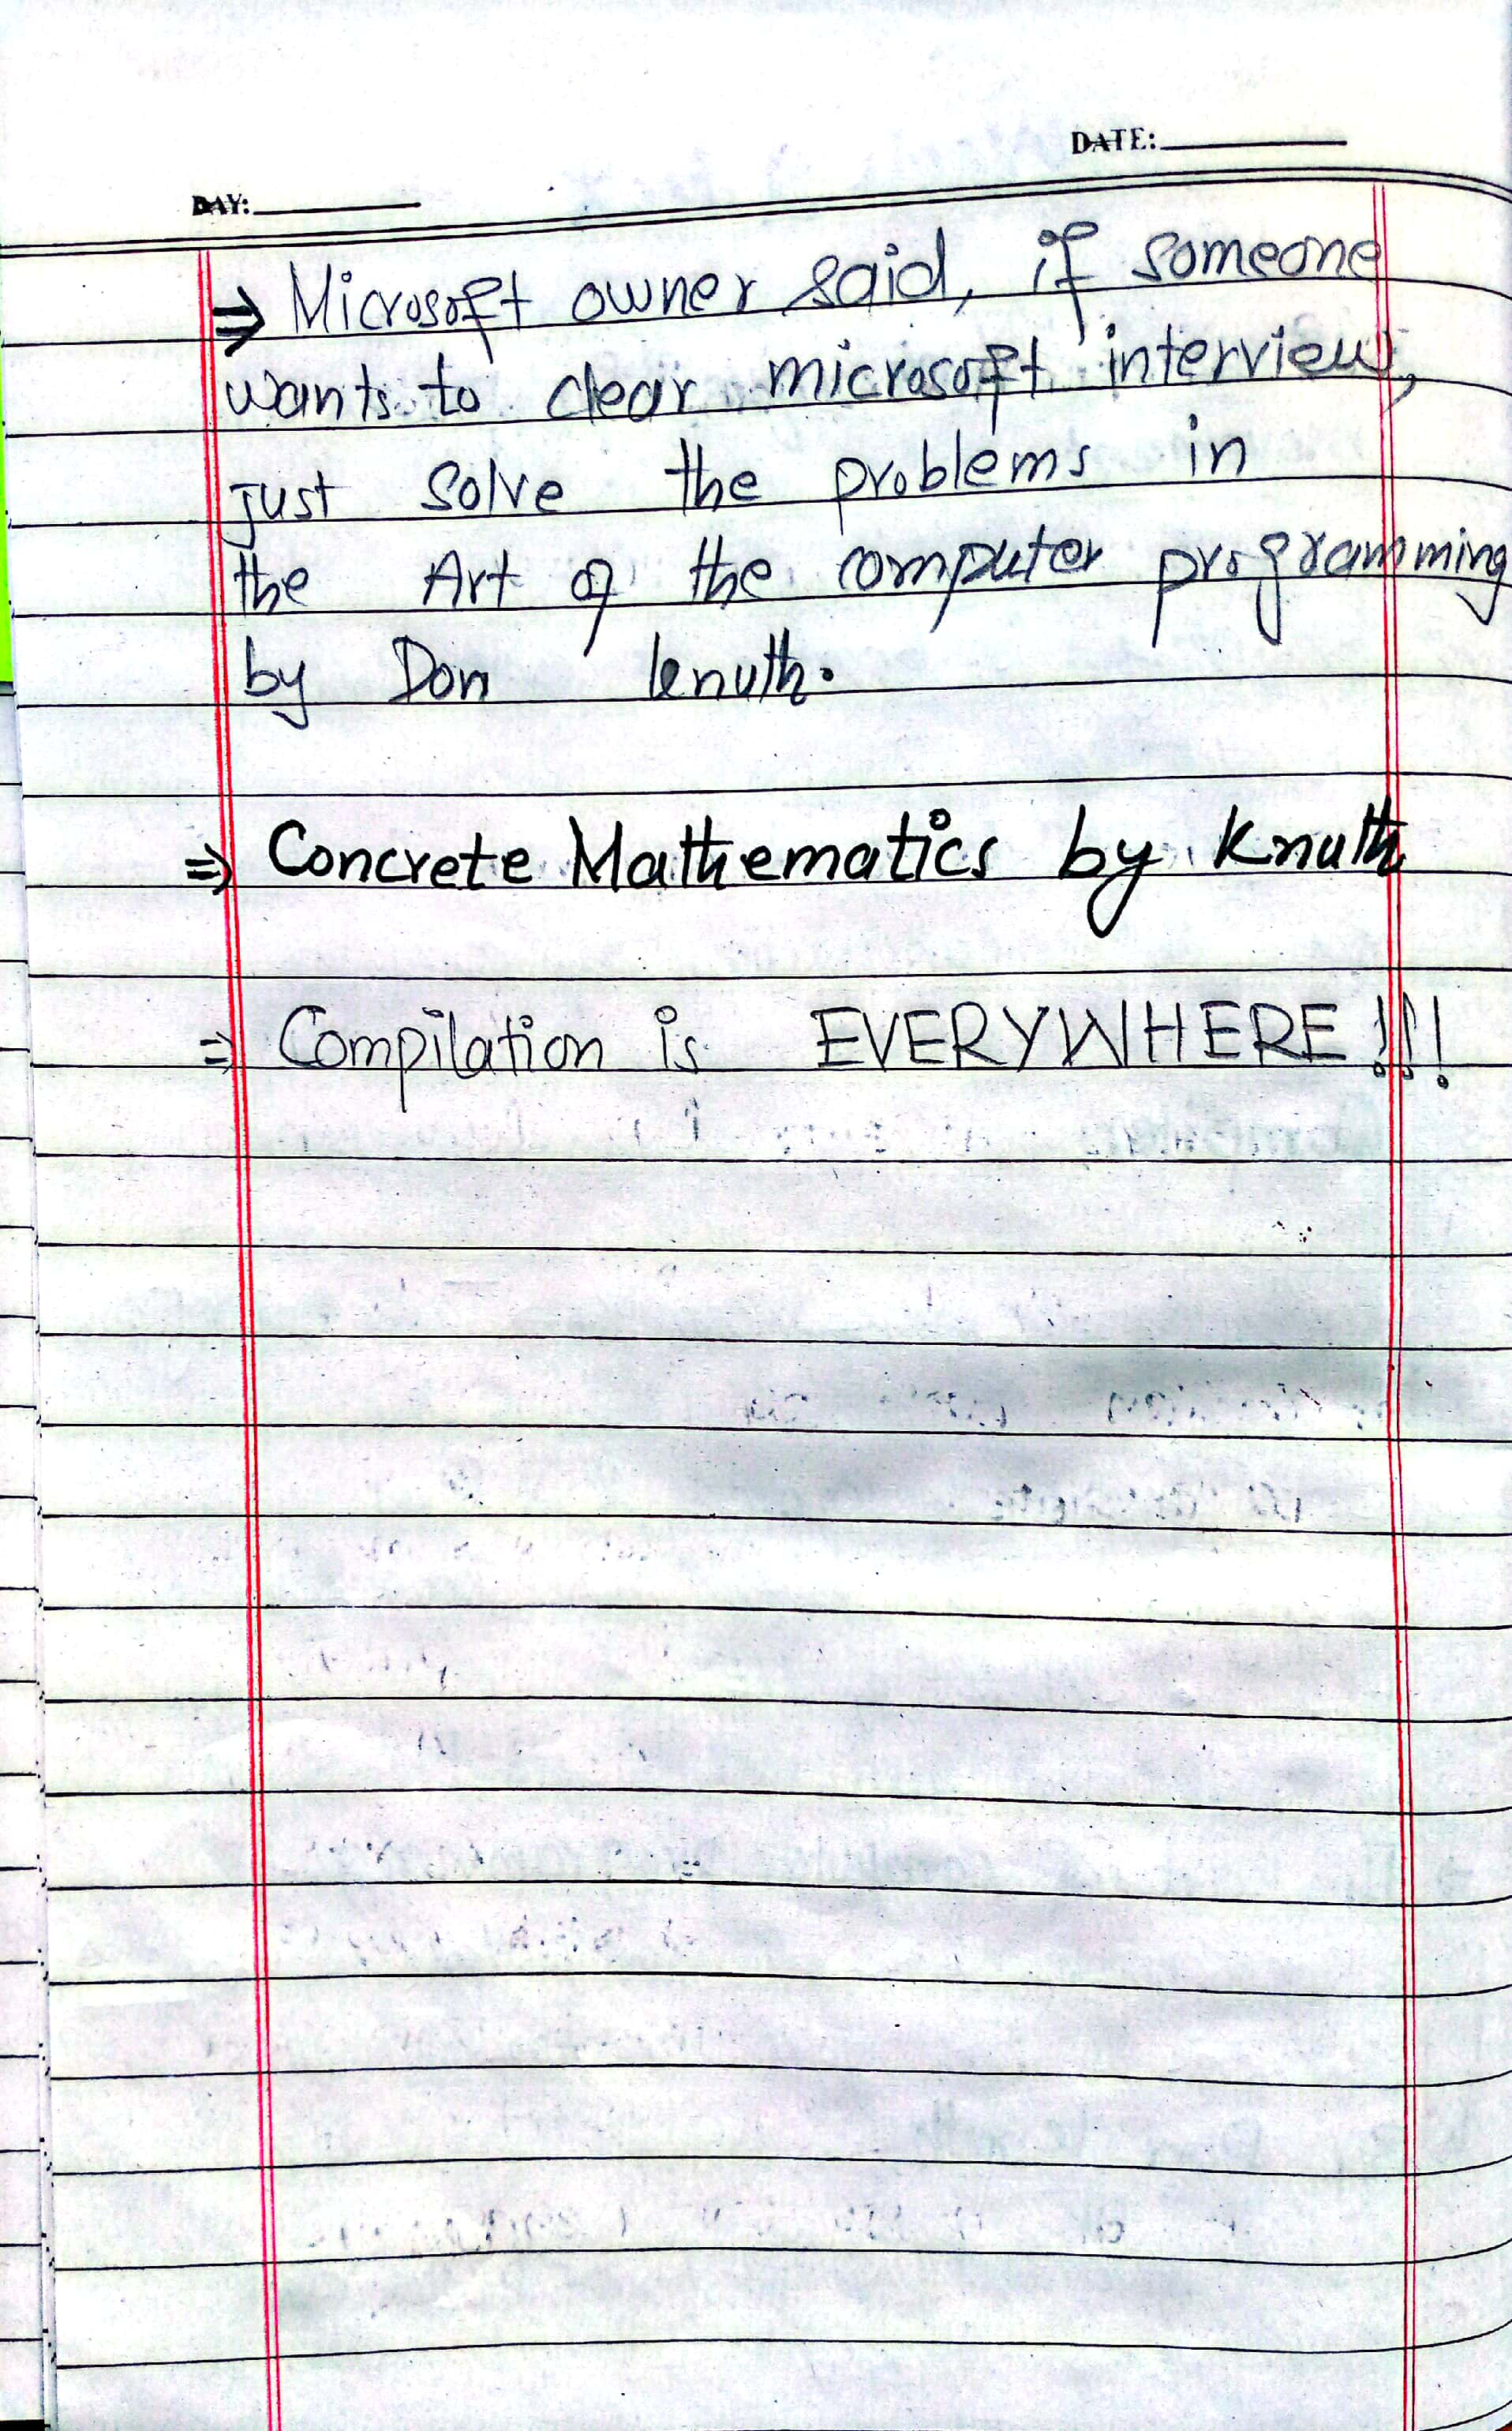 DATE:
DAY:
⇒ Microsoft owner said, if someone
wants to clear microsoft interview,
just solve the problems in
the Art of the computer programming
by Don knuth.
⇒ Concrete Mathematics by Knuth
⇒ Compilation is EVERYWHERE!!!